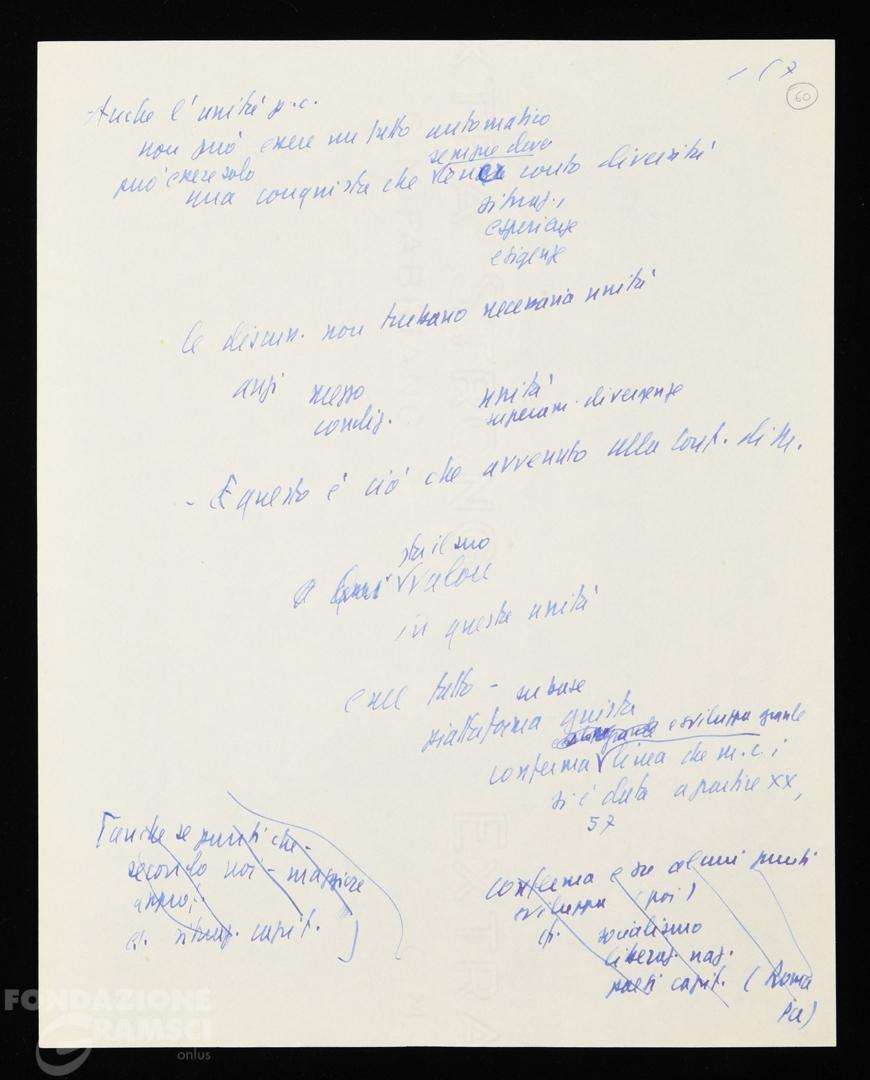 60
Anche l'unità p.c.
non può essere un fatto automatico
può essere solo
sempre deve
una conquista che conto diversità
situaz.,
esperienze
esigenze
le discuss. non turbano necessaria unità
anzi mezzo unità
condiz. superam. divergenze
- E questo è ciò che avvenuto alla Conf. di M.
sta il suo
valore
in questa unità
su tutto - su base
piattaforma giusta
e sviluppa grande
conferma linea che m.c.i
si è data a partire XX,
57
[anche se punti che -
secondo noi - maggiore
es. situaz. capit. ]
conferma e su alcuni punti
sviluppa (poi)
socialismo
liberaz. naz.
paesi capit. (Roma
FONDAZIONE
GRAMSCI
onlus